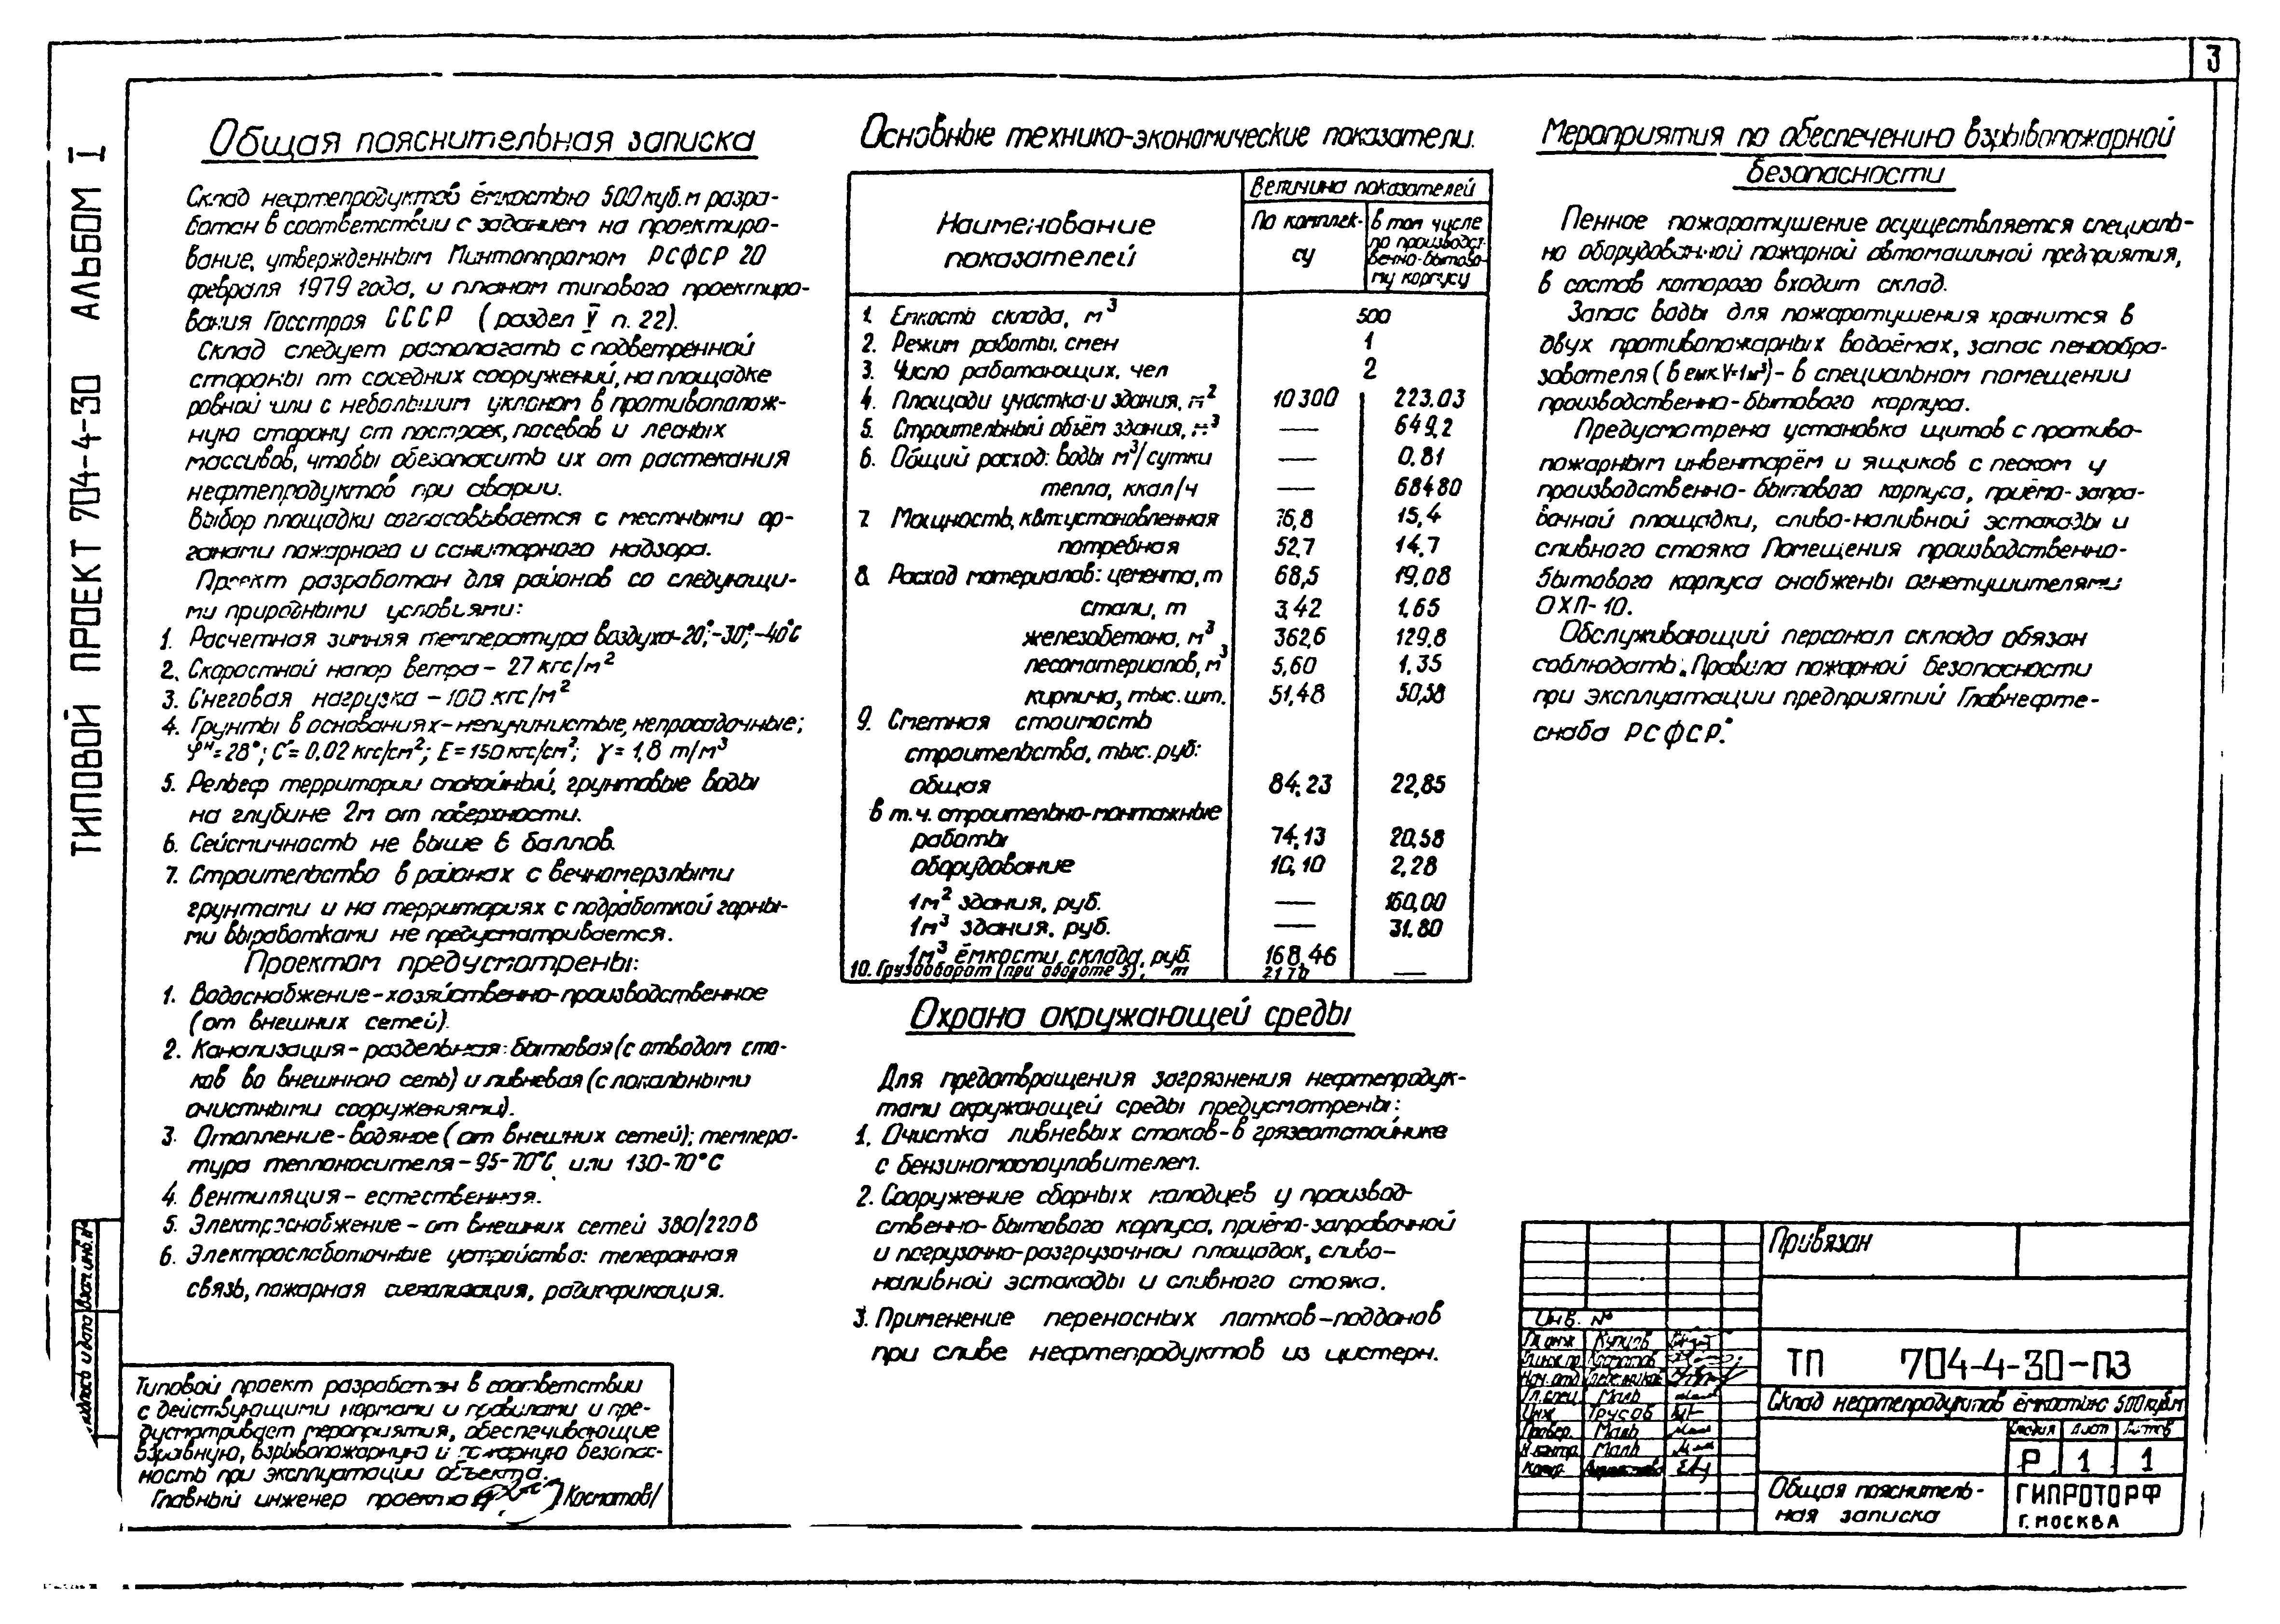 3
ТИПОВОЙ ПРОЕКТ 704-4-30 АЛЬБОМ I
Общая пояснительная записка
Склад нефтепродуктов ёмкостью 500 куб.м разра-
ботан в соответствии с заданием на проектиро-
вание, утвержденным Минтоппромом РСФСР 20
февраля 1979 года, и планом типового проектиро-
вания Госстроя СССР (раздел V п. 22).
Склад следует располагать с подветренной
стороны от соседних сооружений, на площадке
ровной или с небольшим уклоном в противополож-
ную сторону от построек, посевов и лесных
массивов, чтобы обезопасить их от растекания
нефтепродуктов при аварии.
Выбор площадки согласовывается с местными ор-
ганами пожарного и санитарного надзора.
Проект разработан для районов со следующи-
ми природными условиями:
1. Расчетная зимняя температура воздуха-20°;-30°;-40°С
2. Скоростной напор ветра - 27 кгс/м²
3. Снеговая нагрузка - 100 кгс/м²
4. Грунты в основаниях-непучинистые, непросадочные;
φᴴ=28°; С=0,02 кгс/см²; Е=150 кгс/см²; γ=1,8 т/м³
5. Рельеф территории спокойный, грунтовые воды
на глубине 2м от поверхности.
6. Сейсмичность не выше 6 баллов.
7. Строительство в районах с вечномерзлыми
грунтами и на территориях с подработкой горны-
ми выработками не предусматривается.
Проектом предусмотрены:
1. Водоснабжение-хозяйственно-производственное
(от внешних сетей).
2. Канализация-раздельная: бытовая (с отводом сто-
ков во внешнюю сеть) и ливневая (с локальными
очистными сооружениями).
3. Отопление-водяное (от внешних сетей); темпера-
тура теплоносителя-95-70°С или 130-70°С
4. Вентиляция-естественная.
5. Электроснабжение-от внешних сетей 380/220 В
6. Электрослаботочные устройства: телефонная
связь, пожарная сигнализация, радиофикация.
Типовой проект разработан в соответствии
с действующими нормами и правилами и пре-
дусматривает мероприятия, обеспечивающие
взрывную, взрывопожарную и пожарную безопас-
ность при эксплуатации объекта.
Главный инженер проекта /Косматов/
Основные технико-экономические показатели.
Наименование показателей | Величина показателей
По комплек-су | в том числе по производст-венно-бытово-му корпусу
1. Емкость склада, м³ 500
2. Режим работы, смен 1
3. Число работающих, чел 2
4. Площади участка и здания, м² 10300 223.03
5. Строительный объём здания, м³ — 649,2
6. Общий расход: воды м³/сутки — 0,81
тепла, ккал/ч — 68480
7. Мощность, квт: установленная 76,8 15,4
потребная 52,7 14,7
8. Расход материалов: цемента, т 68,5 19,08
стали, т 3,42 1,65
железобетона, м³ 362,6 129,8
лесоматериалов, м³ 5,60 1,35
кирпича, тыс. шт. 51,48 50,58
9. Сметная стоимость
строительства, тыс. руб:
общая 84,23 22,85
в т.ч. строительно-монтажные
работы 74,13 20,58
оборудование 10,10 2,28
1м² здания, руб. — 160,00
1м³ здания, руб. — 31.80
1м³ ёмкости склада, руб. 168,46
10. Грузооборот (при обороте 5), т 2170 —
Охрана окружающей среды
Для предотвращения загрязнения нефтепродук-
тами окружающей среды предусмотрены:
1. Очистка ливневых стоков-в грязеотстойнике
с бензиномаслоуловителем.
2. Сооружение сборных колодцев у производ-
ственно-бытового корпуса, приёмо-заправочной
и погрузочно-разгрузочной площадок, сливо-
наливной эстакады и сливного стояка.
3. Применение переносных лотков-поддонов
при сливе нефтепродуктов из цистерн.
Мероприятия по обеспечению взрывопожарной
безопасности
Пенное пожаротушение осуществляется специаль-
но оборудованной пожарной автомашиной предприятия,
в состав которого входит склад.
Запас воды для пожаротушения хранится в
двух противопожарных водоёмах, запас пенообра-
зователя (в емк. V=1м³) - в специальном помещении
производственно-бытового корпуса.
Предусмотрена установка щитов с противо-
пожарным инвентарём и ящиков с песком у
производственно-бытового корпуса, приёмо-запра-
вочной площадки, сливо-наливной эстакады и
сливного стояка Помещения производственно-
бытового корпуса снабжены огнетушителями
ОХП-10.
Обслуживающий персонал склада обязан
соблюдать „Правила пожарной безопасности
при эксплуатации предприятий Главнефте-
снаба РСФСР."
Привязан
Инв. №
Гл. инж Купцов
Гл.инж.пр. Косматов
Нач. отд
Гл. спец Маль
Инж Трусов
Провер. Маль
Н.контр. Маль
ТП 704-4-30-ПЗ
Склад нефтепродуктов ёмкостью 500 куб.м
Стадия Лист Листов
Р 1 1
Общая пояснитель-
ная записка
ГИПРОТОРФ
Г. МОСКВА